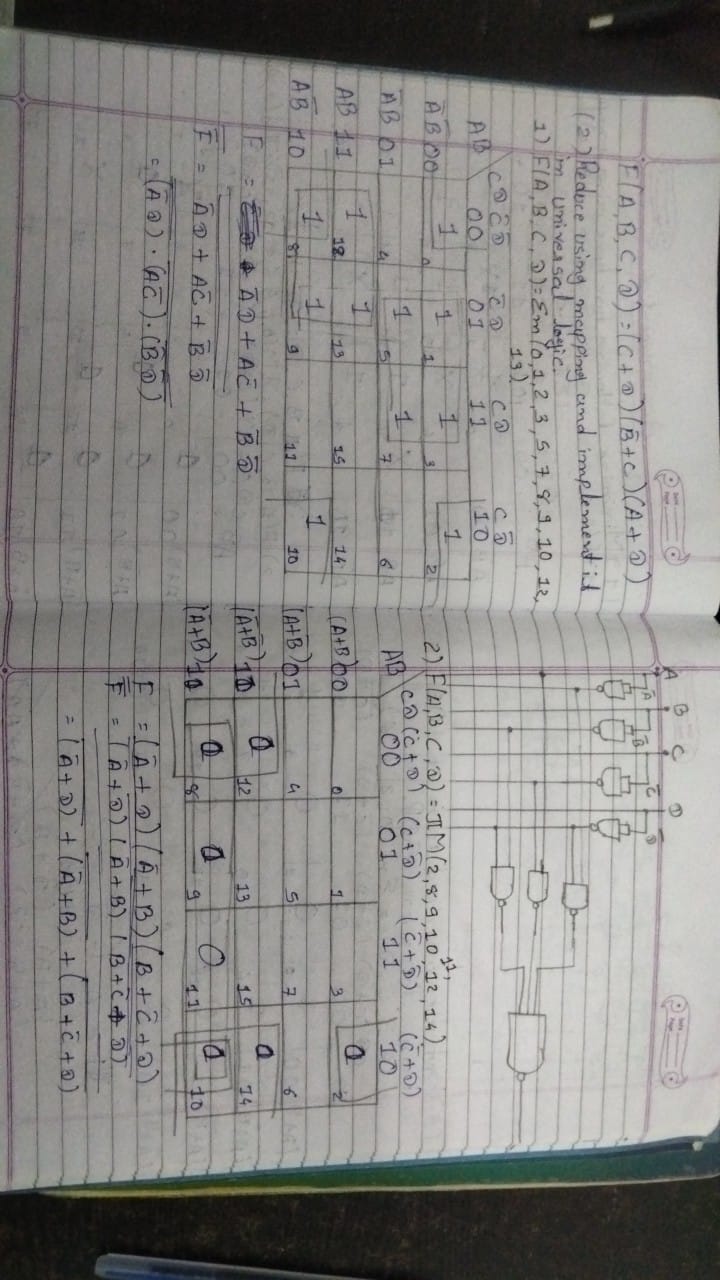 Date
Page
F(A, B, C, D) = (C + D) (B̅ + C) (A + D)
(2) Reduce using mapping and implement it
in universal logic.
1) F(A, B, C, D) = Σm (0, 1, 2, 3, 5, 7, 8, 9, 10, 12,
13)
CD C̅D̅ C̅D CD CD̅
AB 00 01 11 10
A̅B̅ 00 1 0 1 1 1 3 1 2
A̅B 01 4 1 5 1 7 6
AB 11 1 12 1 13 15 14
AB̅ 10 1 8 1 9 11 1 10
F = A̅D + AC̅ + B̅D̅
F̿ = \overline{\overline{A̅D + AC̅ + B̅D̅}}
= \overline{\overline{(A̅D)} · \overline{(AC̅)} · \overline{(B̅D̅)}}
Date
Page
A B C D
A̅ B̅ C̅ D̅
2) F(A, B, C, D) = πM(2, 8, 9, 10, 11, 12, 14)
CD (C + D) (C + D̅) (C̅ + D̅) (C̅ + D)
AB 00 01 11 10
(A+B) 00 0 1 3 0 2
(A+B̅) 01 4 5 7 6
(A̅+B̅) 0 12 13 15 0 14
(A̅+B) 10 0 8 0 9 0 11 0 10
F = (A̅ + D) (A̅ + B) (B + C̅ + D)
F̿ = \overline{\overline{(A̅ + D) (A̅ + B) (B + C̅ + D)}}
= \overline{\overline{(A̅ + D)} + \overline{(A̅ + B)} + \overline{(B + C̅ + D)}}